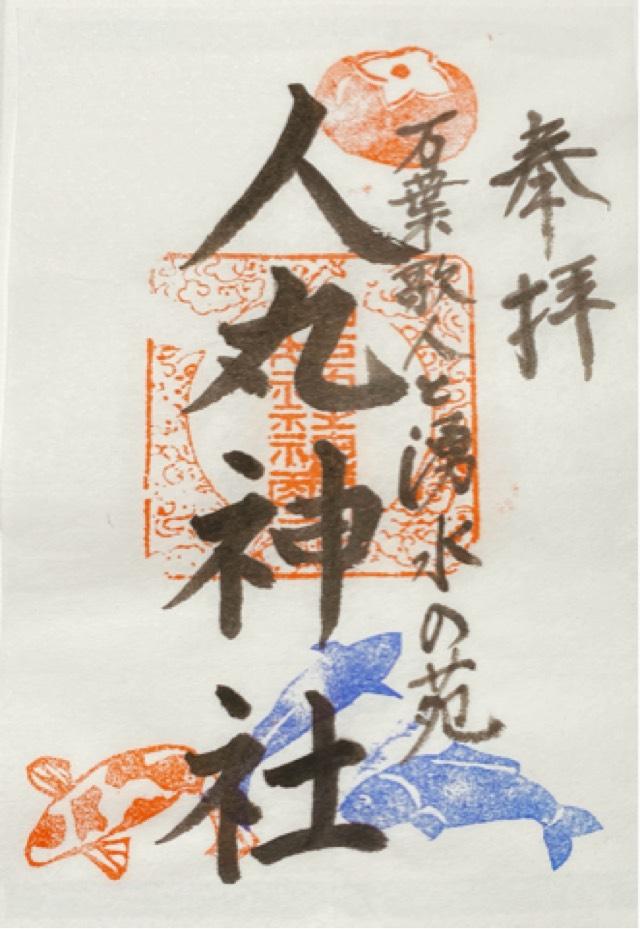 奉拝
万葉歌人と湧水の苑
人丸神社